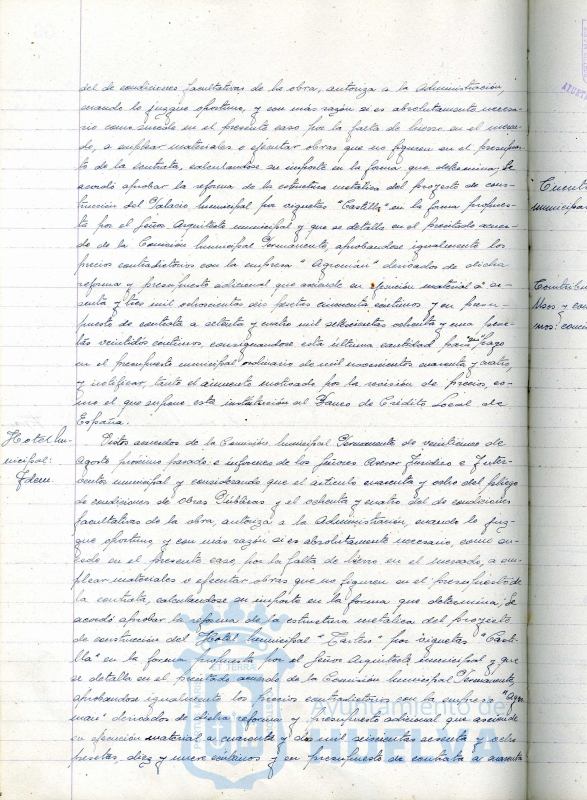 del de condiciones facultativas de la obra, autoriza a la Administración,
cuando lo juzgue oportuno, y con más razón si es absolutamente necesa-
rio como sucede en el presente caso por la falta de hierro en el merca-
do, a emplear materiales o ejecutar obras que no figuren en el presupues-
to de la contrata, calculandose su importe en la forma que determina; Se
acordó aprobar la reforma de la estructura metalica del proyecto de cons-
trucción del Palacio Municipal por viguetas "Castilla" en la forma propues-
ta por el Señor Arquitecto municipal y que se detalla en el precitado acuer-
do de la Comisión Municipal Permanente, aprobandose igualmente los
precios contradictorios con la empresa "Agroman" derivados de dicha
reforma y presupuesto adicional que asciende en ejecución material a se-
senta y tres mil ochocientas dos pesetas cincuenta centimos y en presu-
puesto de contrata a setenta y cuatro mil seiscientas ochenta y una pese-
tas veintidos centimos, consignandose esta ultima cantidad para su pago
en el presupuesto municipal ordinario de mil novecientos cuarenta y cuatro,
y notificar, tanto el aumento motivado por la revisión de precios, co-
mo el que supone esta instalación al Banco de Crédito Local de
España.
Hotel Mu-
nicipal:
Idem.
Vistos acuerdos de la Comisión Municipal Permanente de veintiunos de
Agosto próximo pasado e informes de los Señores Asesor Jurídico e Inter-
ventor municipal y considerando que el articulo cuarenta y ocho del pliego
de condiciones de Obras Publicas y el ochenta y cuatro del de condiciones
facultativas de la obra, autoriza a la Administración, cuando lo juz-
gue oportuno y con más razón si es absolutamente necesario, como su-
cede en el presente caso, por la falta de hierro en el mercado, a em-
plear materiales o ejecutar obras que no figuren en el presupuesto de
la contrata, calculandose su importe en la forma que determina; Se
acordó aprobar la reforma de la estructura metalica del proyecto
de construcción del Hotel Municipal "Tartess" por viguetas "Casti-
lla" en la forma propuesta por el Señor Arquitecto municipal y que
se detalla en el precitado acuerdo de la Comisión Municipal Permanente,
aprobandose igualmente los precios contradictorios con la empresa "Agro-
man" derivados de dicha reforma y presupuesto adicional que asciende
en ejecución material a cuarenta y dos mil seiscientas sesenta y ocho
pesetas, diez y nueve centimos y en presupuesto de contrata a cuarenta
Cuenta
municipal
Contribu
Usos y con
mos:
Ayuntamiento de
HUELVA